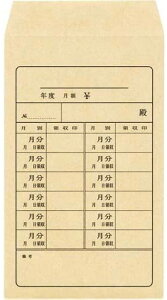 年度 月額 ¥
№ 殿
月 別 領収印 月 別 領収印
月分 月分
月 日領収 月 日領収
月分 月分
月 日領収 月 日領収
月分 月分
月 日領収 月 日領収
月分 月分
月 日領収 月 日領収
月分 月分
月 日領収 月 日領収
月分 月分
月 日領収 月 日領収
備考